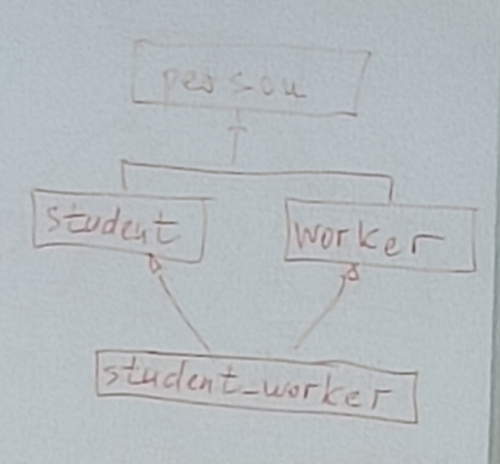 person
student
worker
student_worker